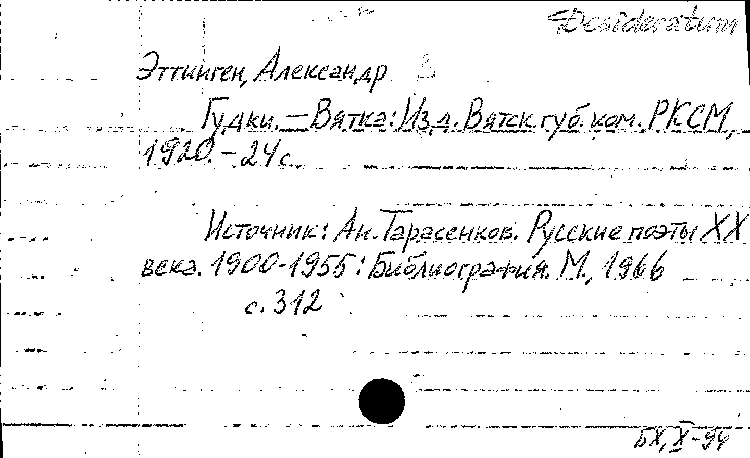 Desideratum
Эттинген, Александр
Гудки. — Вятка: Изд. Вятск. губ. ком. РКСМ,
1920. - 24 с.
Источник: Ан. Тарасенков. Русские поэты XX
века. 1900-1955: Библиография. М., 1966
с. 312
БХ, X-94